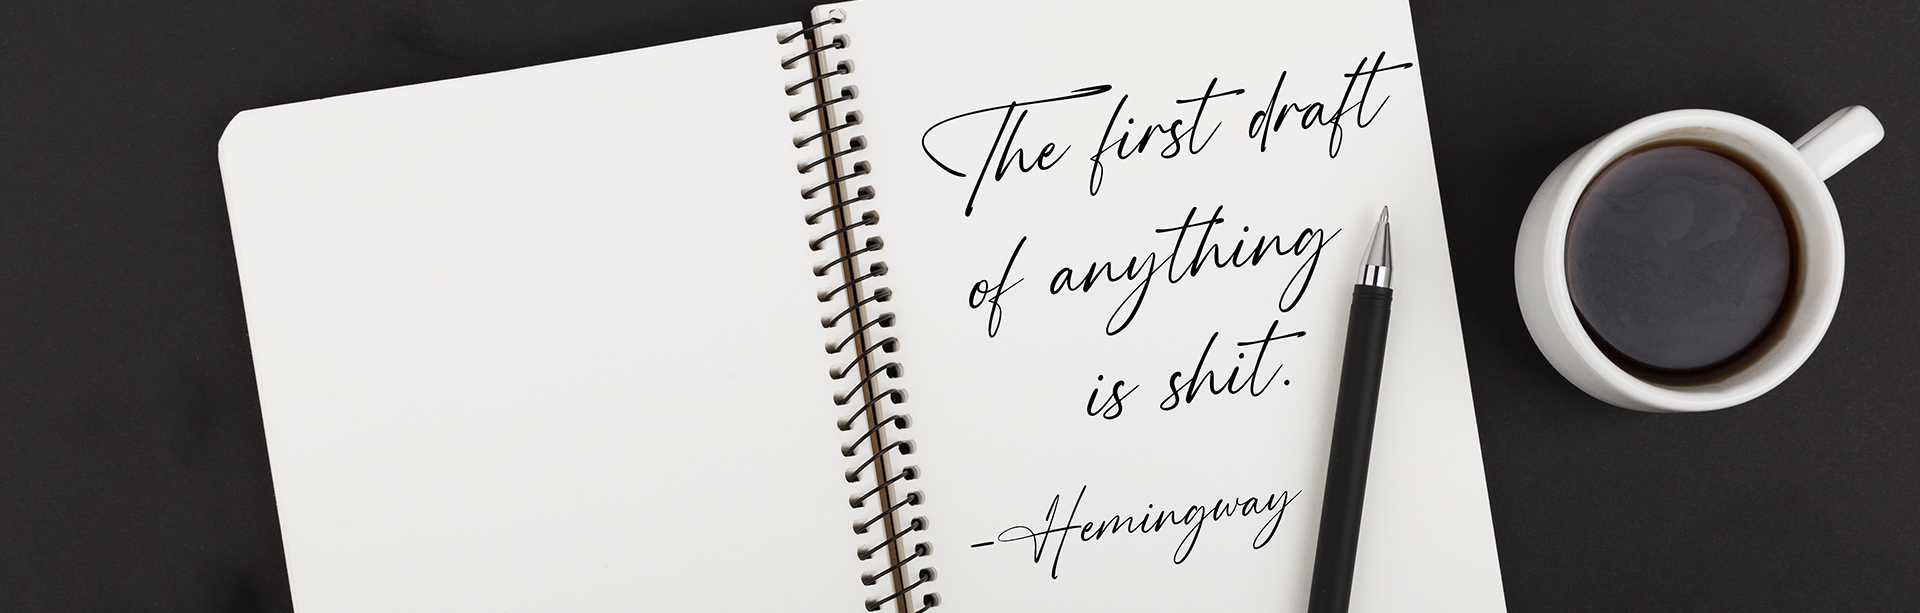 The first draft
of anything
is shit.
-Hemingway